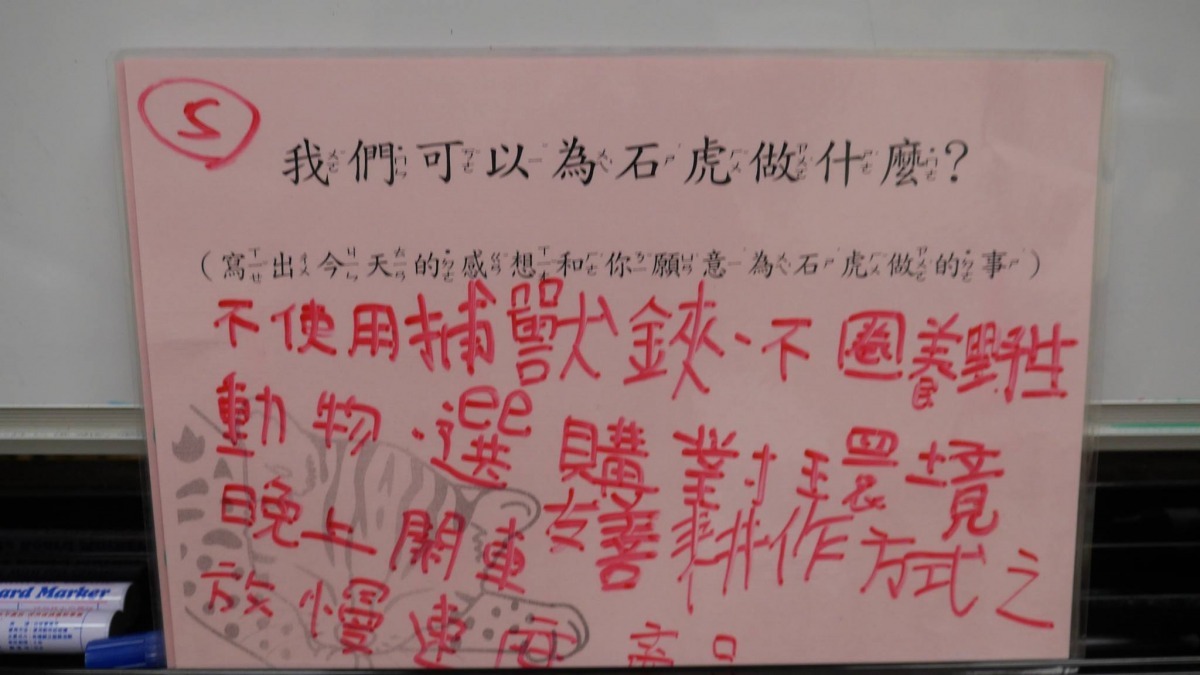 5
我們可以為石虎做什麼？
（寫出今天的感想和你願意為石虎做的事）
不使用捕獸鋏、不圈養野性
動物.選購對環境
晚上開車 友善耕作方式之
放慢速度 產品
ard Marker